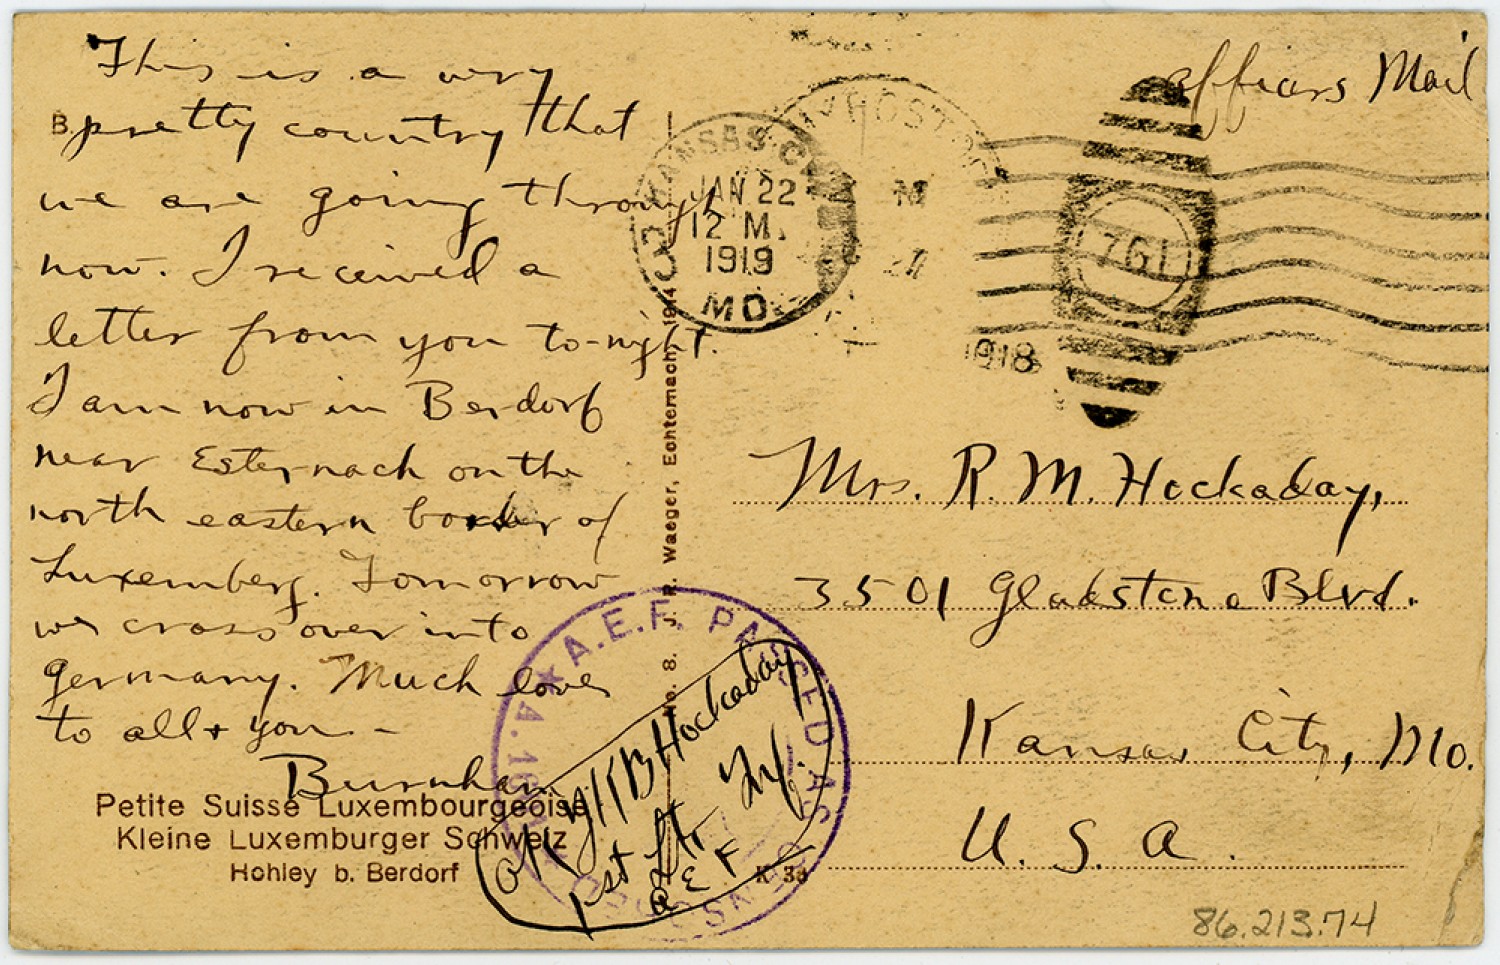 This is a very
pretty country that
we are going through
now. I received a
letter from you to-night.
I am now in Berdorf
near Esternach on the
north eastern border of
Luxemberg. Tomorrow
we cross over into
Germany. Much love
to all + you –
Burnham
Petite Suisse Luxembourgeoise
Kleine Luxemburger Schweiz
Hohley b. Berdorf
No. 8. J. R. Waeger, Echternach 1914
KANSAS CITY
JAN 22
12 M.
1919
MO.
M
1918
761
Officers Mail
Mrs. R. M. Hockaday,
3501 Gladstone Blvd.
Kansas City, Mo.
U. S. A.
A.E.F. PASSED AS CENSORED
OK
Hockaday
1st Lt. Inf.
A E F
K 3a
86.213.74